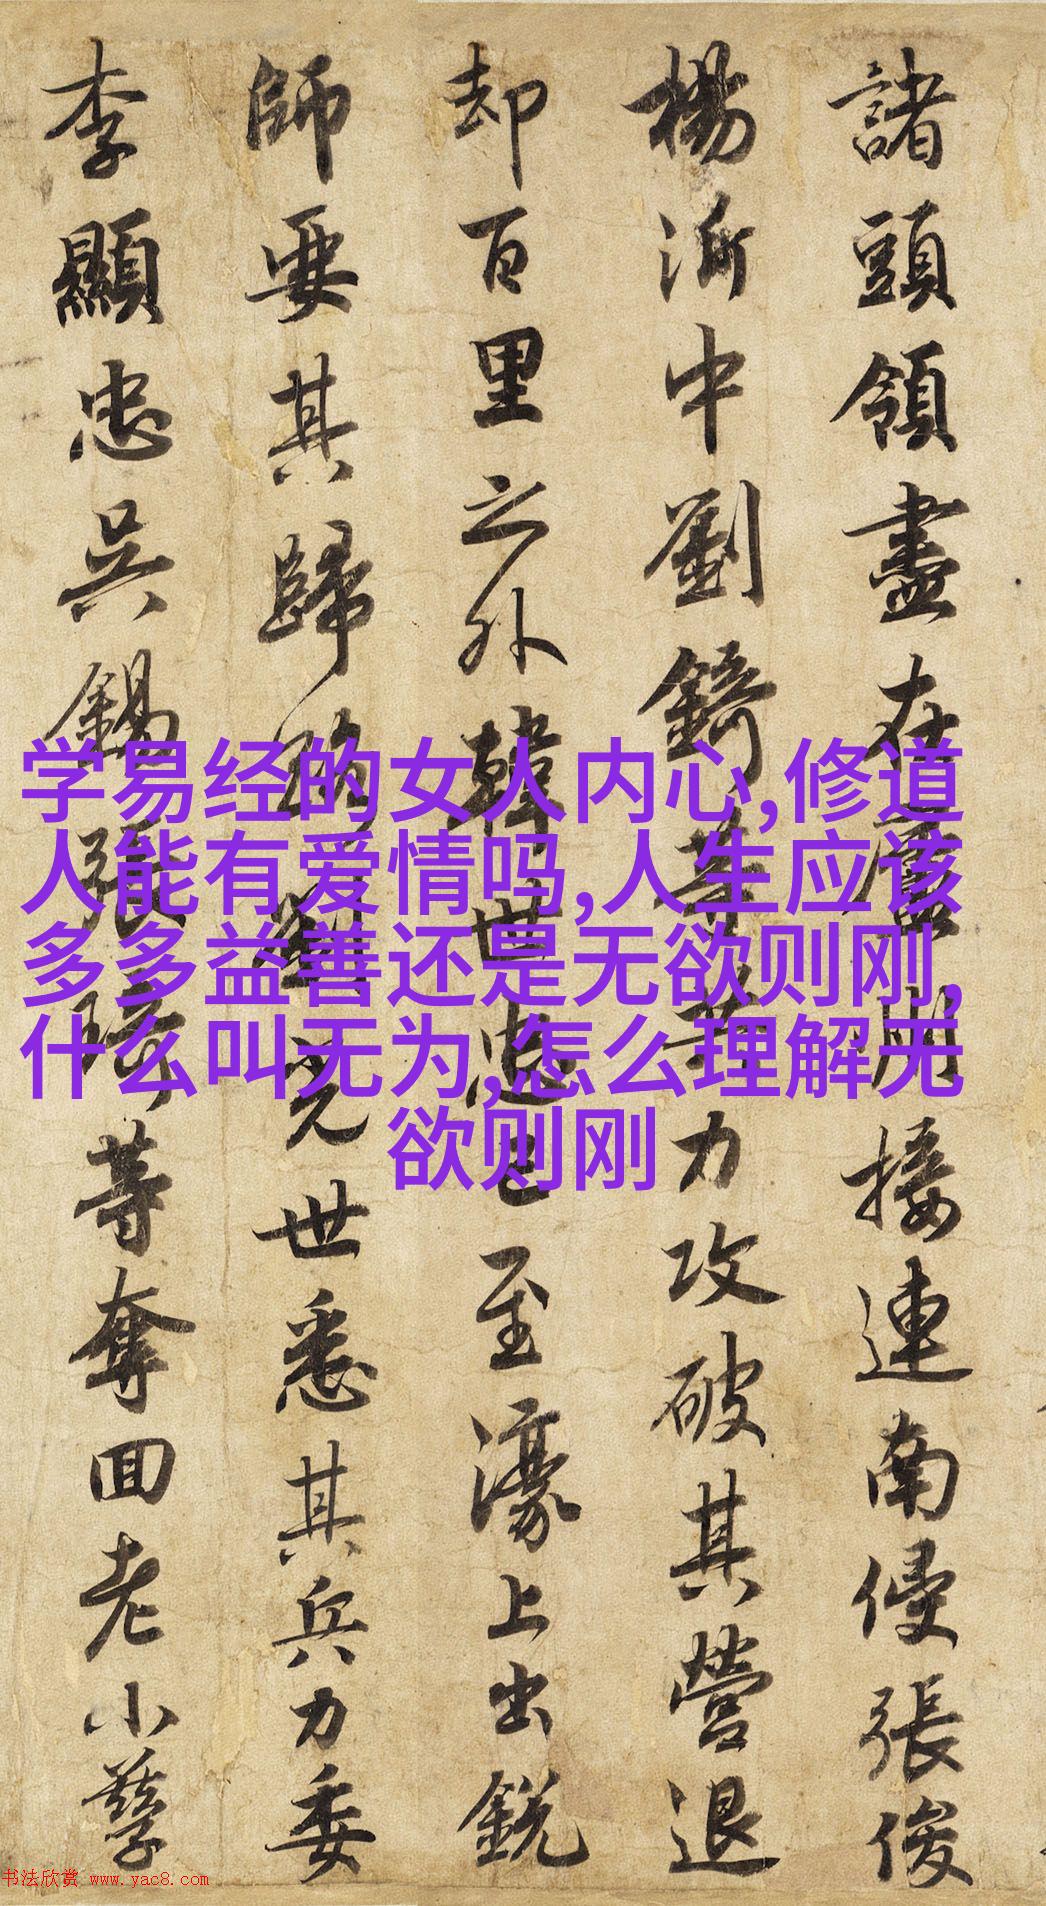 諸頭領盡在廬州接連南侵張俊
楊沂中劉錡等力攻破其營退
却百里之外韓世忠已至濠上出銳
師要其歸路劉光世悉其兵力委
李顯忠吳錫張琦等奪囬老小孳
学易经的女人内心,修道
人能有爱情吗,人生应该
多多益善还是无欲则刚,
什么叫无为,怎么理解无
欲则刚
书法欣赏 www.yac8.com